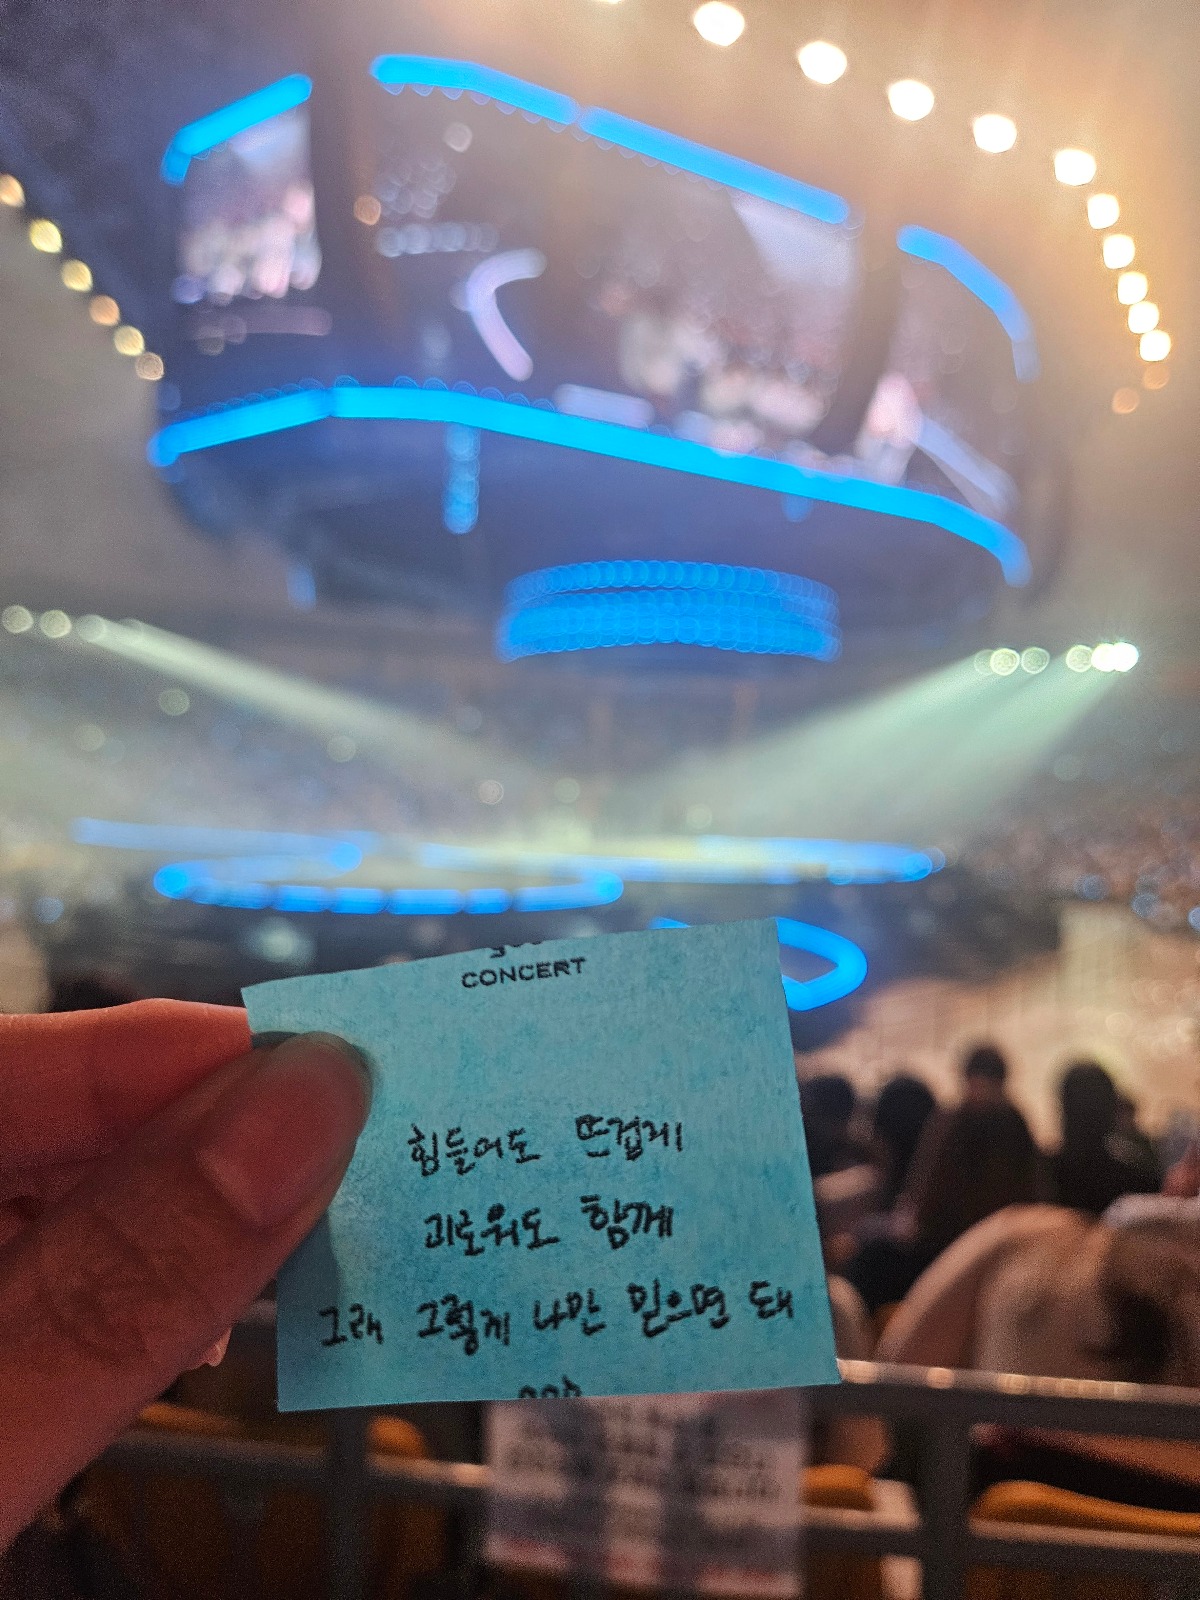 CONCERT
힘들어도 뜨겁게
괴로워도 함께
그래 그렇게 나만 믿으면 돼